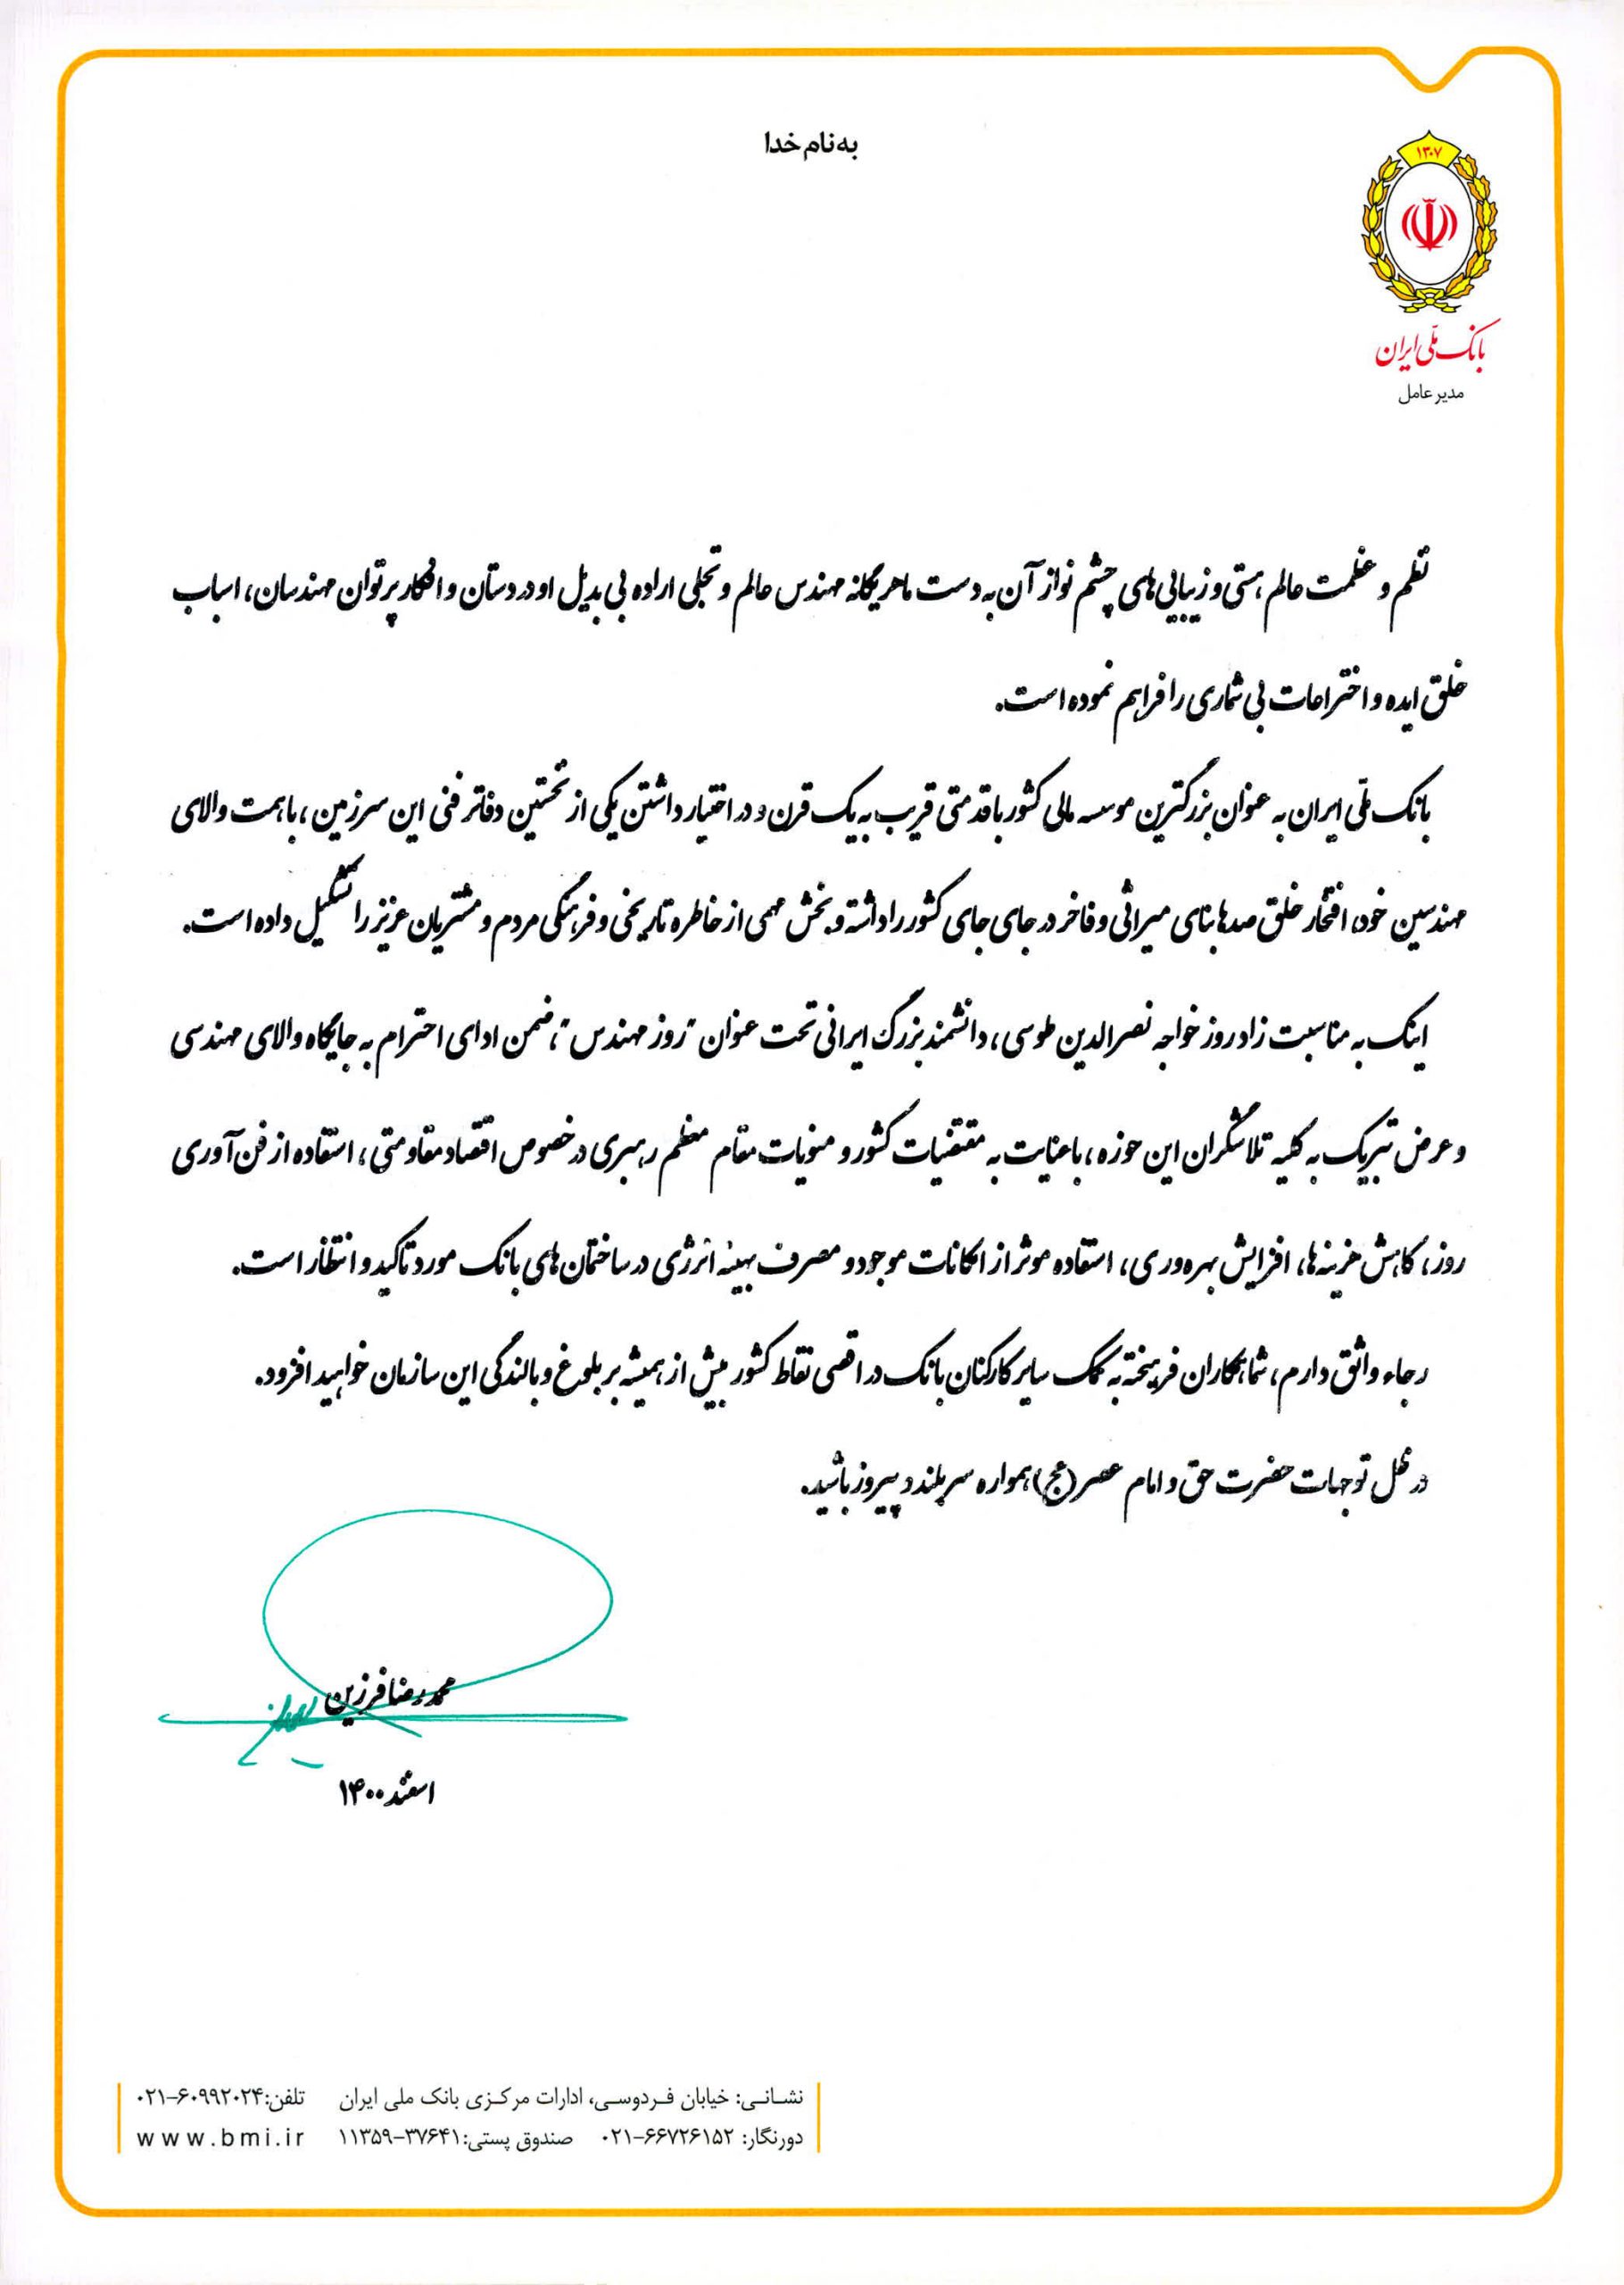 به نام خدا
۱۳۰۷
بانک ملّی ایران
مدیر عامل
نظم و عظمت عالم هستی و زیبایی‌های چشم نواز آن به دست ماهر یگانه مهندس عالم و تجلی اراده بی بدیل او در دستان و افکار پر توان مهندسان، اسباب
خلق ایده و اختراعات بی شماری را فراهم نموده است.
بانک ملّی ایران به عنوان بزرگترین موسسه مالی کشور با قدمتی قریب به یک قرن و در اختیار داشتن یکی از نخستین دفاتر فنی این سرزمین، با همت والای
مهندسین خود، افتخار خلق صدها بنای میراثی و فاخر در جای جای کشور را داشته و بخش مهمی از خاطره تاریخی و فرهنگی مردم و مشتریان عزیز را تشکیل داده است.
اینک به مناسبت زادروز خواجه نصرالدین طوسی، دانشمند بزرگ ایرانی تحت عنوان "روز مهندس"، ضمن ادای احترام به جایگاه والای مهندسی
و عرض تبریک به کلیه تلاشگران این حوزه، با عنایت به مقتضیات کشور و منویات مقام معظم رهبری در خصوص اقتصاد مقاومتی، استفاده از فن آوری
روز، کاهش هزینه‌ها، افزایش بهره‌وری، استفاده موثر از امکانات موجود و مصرف بهینه انرژی در ساختمان‌های بانک مورد تاکید و انتظار است.
رجاء واثق دارم، شما همکاران فرهیخته به کمک سایر کارکنان بانک در اقصی نقاط کشور بیش از همیشه بر بلوغ و بالندگی این سازمان خواهید افزود.
در ظل توجهات حضرت حق و امام عصر (عج) همواره سربلند و پیروز باشید.
محمدرضا فرزین
اسفند ۱۴۰۰
نشانی: خیابان فردوسی، ادارات مرکزی بانک ملی ایران تلفن: ۰۲۱-۶۰۹۹۲۰۲۴
دورنگار: ۰۲۱-۶۶۷۲۶۱۵۲ صندوق پستی: ۱۱۳۵۹-۳۷۶۴۱ www.bmi.ir